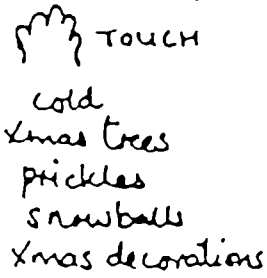 TOUCH
cold
Xmas trees
prickles
snowballs
Xmas decorations